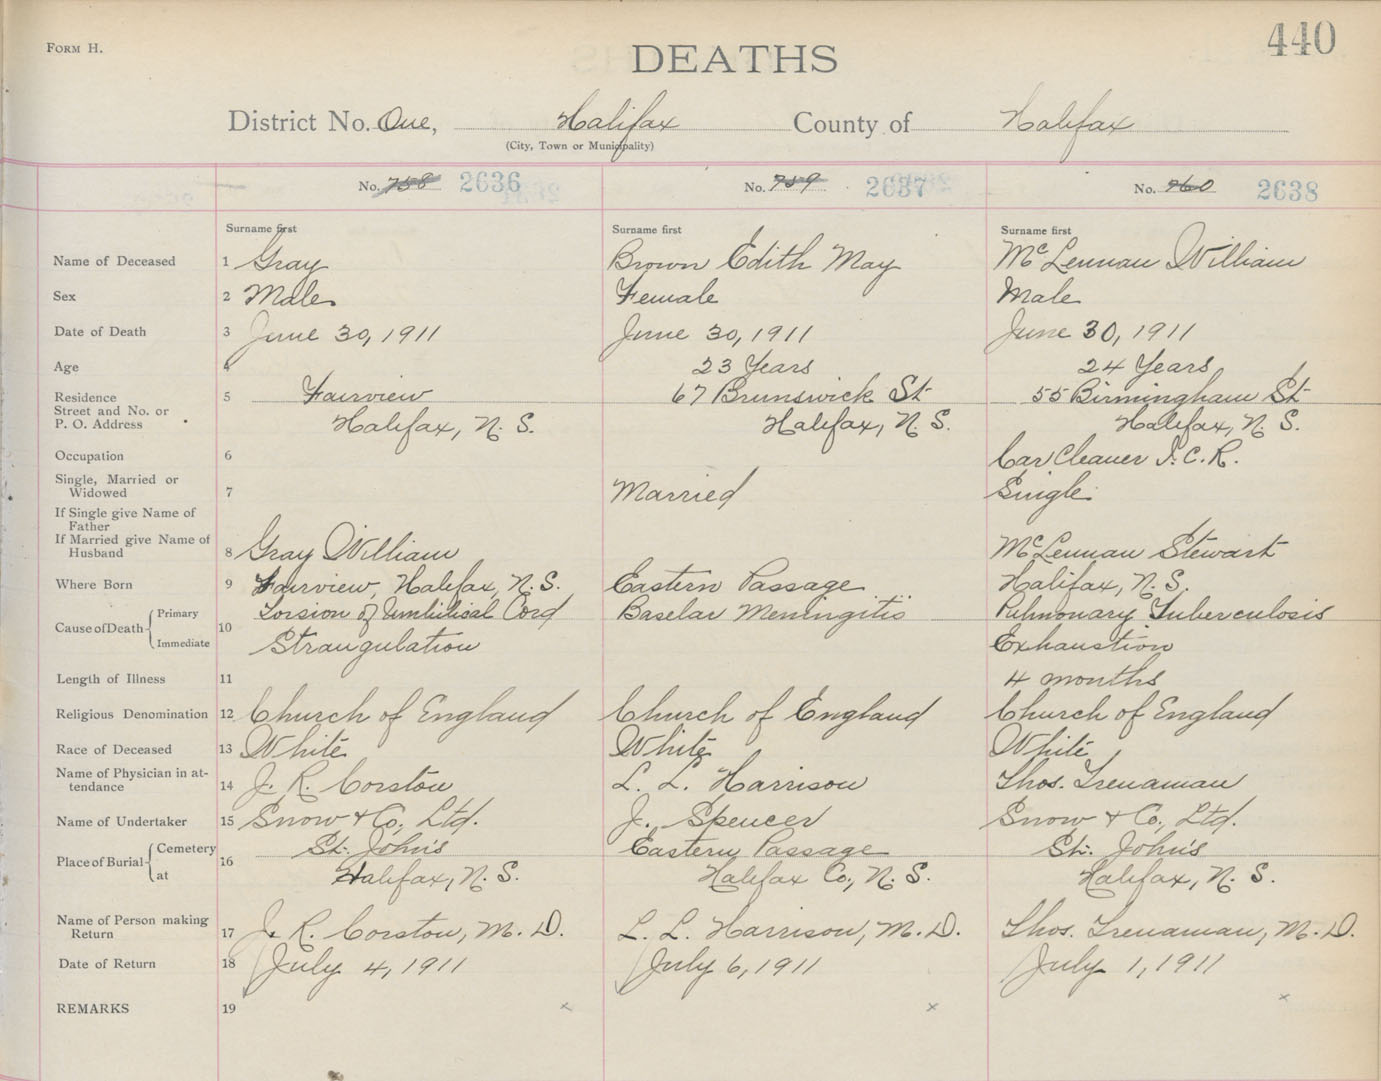 FORM H.
DEATHS
440
District No. One, Halifax County of Halifax
(City, Town or Municipality)
No. 758 2636 No. 759 2637 No. 760 2638
Surname first Surname first Surname first
Name of Deceased 1 Gray Brown Edith May McLennan William
Sex 2 Male Female Male
Date of Death 3 June 30, 1911 June 30, 1911 June 30, 1911
Age 4 23 Years 24 Years
Residence 5 Fairview 67 Brunswick St 55 Birmingham St
Street and No. or
P. O. Address Halifax, N. S. Halifax, N. S. Halifax, N. S.
Occupation 6 Car Cleaner I. C. R.
Single, Married or
Widowed 7 Married Single
If Single give Name of
Father
If Married give Name of
Husband 8 Gray William McLennan Stewart
Where Born 9 Fairview, Halifax, N. S. Eastern Passage Halifax, N. S.
Cause of Death Primary 10 Torsion of Umbilical Cord Baselar Meningitis Pulmonary Tuberculosis
Immediate Strangulation Exhaustion
Length of Illness 11 4 months
Religious Denomination 12 Church of England Church of England Church of England
Race of Deceased 13 White White White
Name of Physician in at-
tendance 14 J. R. Corston L. L. Harrison Thos. Trenaman
Name of Undertaker 15 Snow & Co., Ltd. J. Spencer Snow & Co., Ltd.
Place of Burial Cemetery 16 St. John's Eastern Passage St. John's
at Halifax, N. S. Halifax Co., N. S. Halifax, N. S.
Name of Person making
Return 17 J. R. Corston, M. D. L. L. Harrison, M. D. Thos. Trenaman, M. D.
Date of Return 18 July 4, 1911 July 6, 1911 July 1, 1911
REMARKS 19 x x x